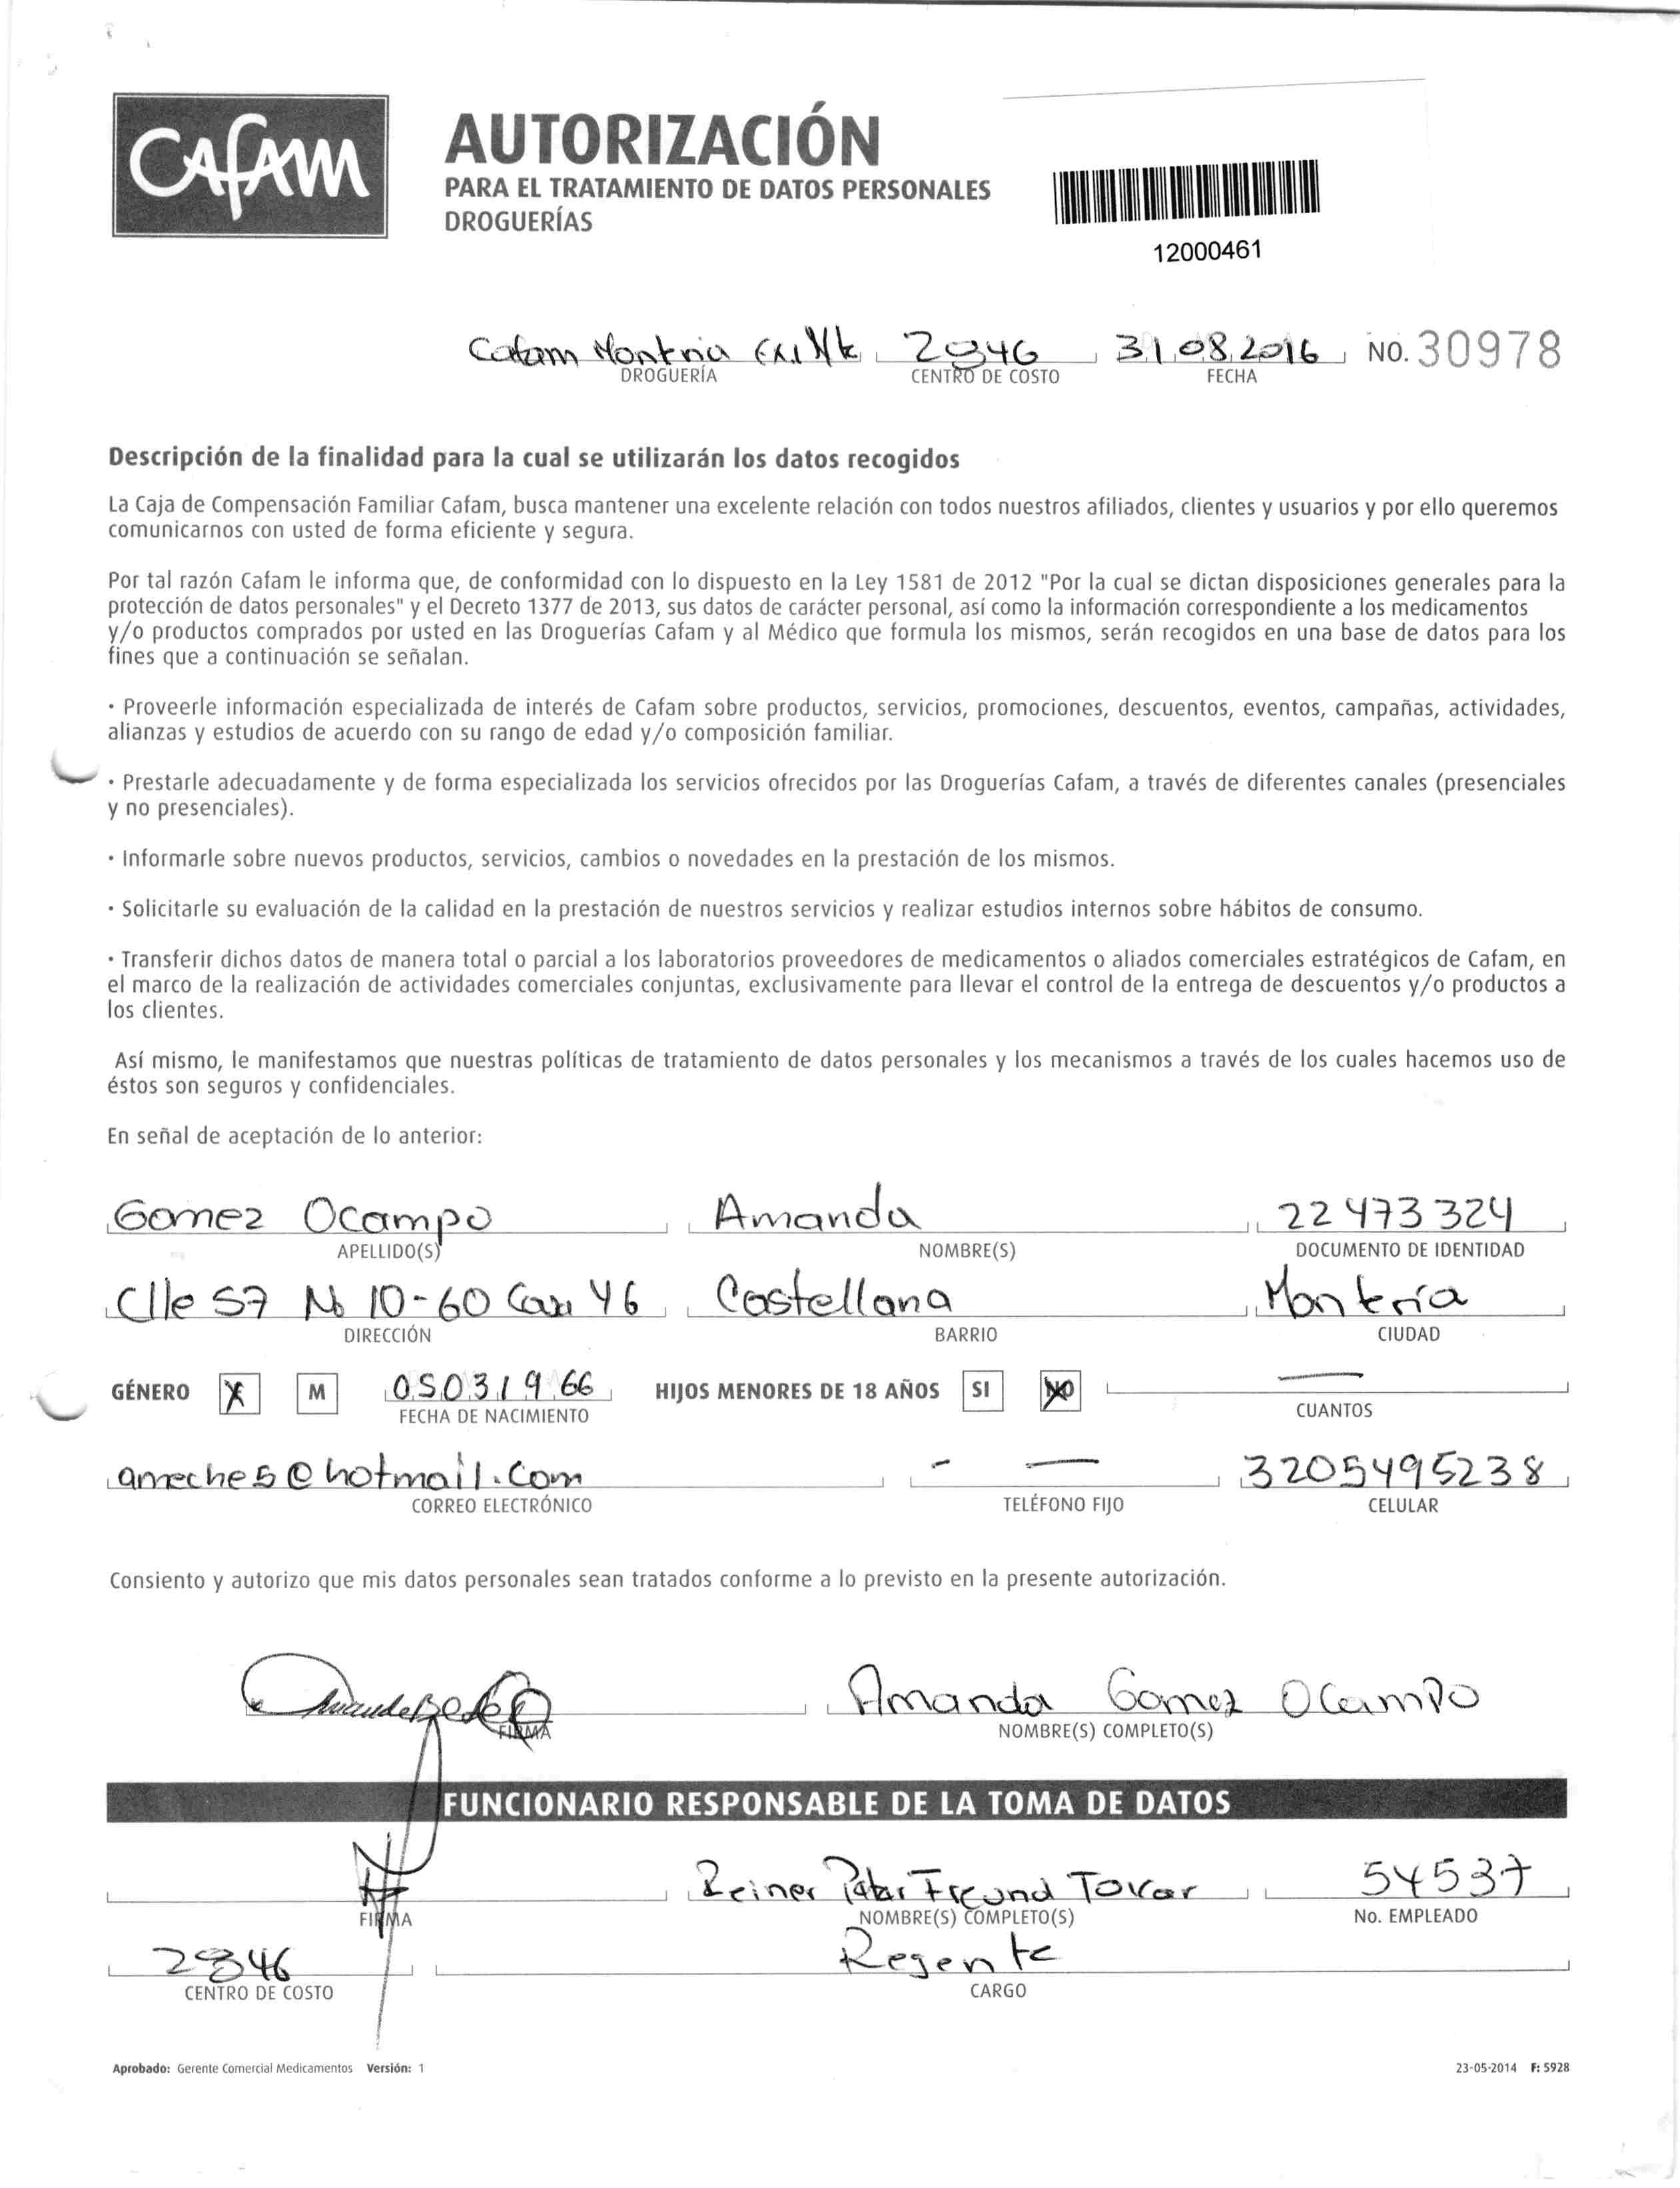 Cafam
AUTORIZACIÓN
PARA EL TRATAMIENTO DE DATOS PERSONALES
DROGUERÍAS
12000461
Cafam Monteria 2846 31 08 2016 NO. 30978
DROGUERÍA CENTRO DE COSTO FECHA
Descripción de la finalidad para la cual se utilizarán los datos recogidos
La Caja de Compensación Familiar Cafam, busca mantener una excelente relación con todos nuestros afiliados, clientes y usuarios y por ello queremos
comunicarnos con usted de forma eficiente y segura.
Por tal razón Cafam le informa que, de conformidad con lo dispuesto en la Ley 1581 de 2012 "Por la cual se dictan disposiciones generales para la
protección de datos personales" y el Decreto 1377 de 2013, sus datos de carácter personal, así como la información correspondiente a los medicamentos
y/o productos comprados por usted en las Droguerías Cafam y al Médico que formula los mismos, serán recogidos en una base de datos para los
fines que a continuación se señalan.
· Proveerle información especializada de interés de Cafam sobre productos, servicios, promociones, descuentos, eventos, campañas, actividades,
alianzas y estudios de acuerdo con su rango de edad y/o composición familiar.
· Prestarle adecuadamente y de forma especializada los servicios ofrecidos por las Droguerías Cafam, a través de diferentes canales (presenciales
y no presenciales).
· Informarle sobre nuevos productos, servicios, cambios o novedades en la prestación de los mismos.
· Solicitarle su evaluación de la calidad en la prestación de nuestros servicios y realizar estudios internos sobre hábitos de consumo.
· Transferir dichos datos de manera total o parcial a los laboratorios proveedores de medicamentos o aliados comerciales estratégicos de Cafam, en
el marco de la realización de actividades comerciales conjuntas, exclusivamente para llevar el control de la entrega de descuentos y/o productos a
los clientes.
Así mismo, le manifestamos que nuestras políticas de tratamiento de datos personales y los mecanismos a través de los cuales hacemos uso de
éstos son seguros y confidenciales.
En señal de aceptación de lo anterior:
Gomez Ocampo Amanda 22 473 324
APELLIDO(S) NOMBRE(S) DOCUMENTO DE IDENTIDAD
Clle 57 N 10-60 Casa 46 Castellana Montería
DIRECCIÓN BARRIO CIUDAD
GÉNERO X M 05031966 HIJOS MENORES DE 18 AÑOS SI NO —
FECHA DE NACIMIENTO CUANTOS
ameche5@hotmail.com - — 3205495238
CORREO ELECTRÓNICO TELÉFONO FIJO CELULAR
Consiento y autorizo que mis datos personales sean tratados conforme a lo previsto en la presente autorización.
Amanda Gomez Ocampo
FIRMA NOMBRE(S) COMPLETO(S)
FUNCIONARIO RESPONSABLE DE LA TOMA DE DATOS
Reiner Freund Tovar 54537
FIRMA NOMBRE(S) COMPLETO(S) No. EMPLEADO
2846 Regente
CENTRO DE COSTO CARGO
Aprobado: Gerente Comercial Medicamentos Versión: 1 23-05-2014 F: 5928